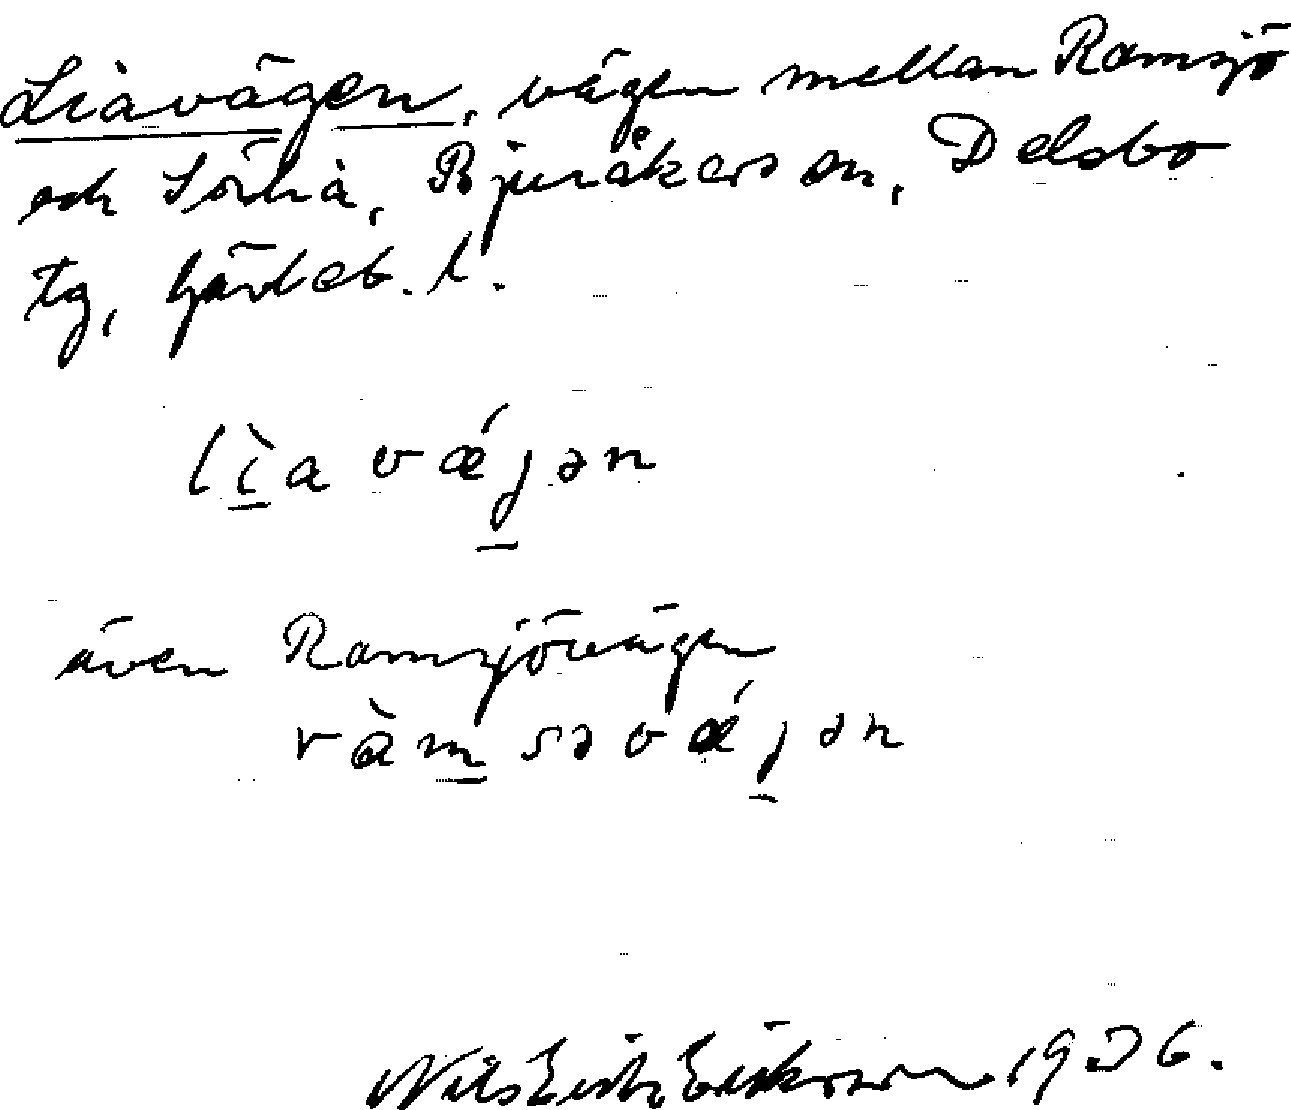 Liavägen, vägen mellan Ramsjö
och Sörlia, Bjuråkers sn, Delsbo
tg, Gävleb. l.
lìavǽjən
även Ramsjövägen
ràmsəvǽjən
Nils Erik Eriksson 1936.